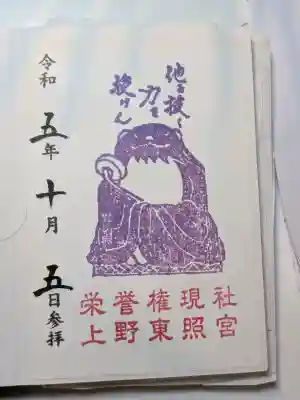 他を抜く
力を
授けん
栄誉権現社
上野東照宮
令和五年十月五日参拝